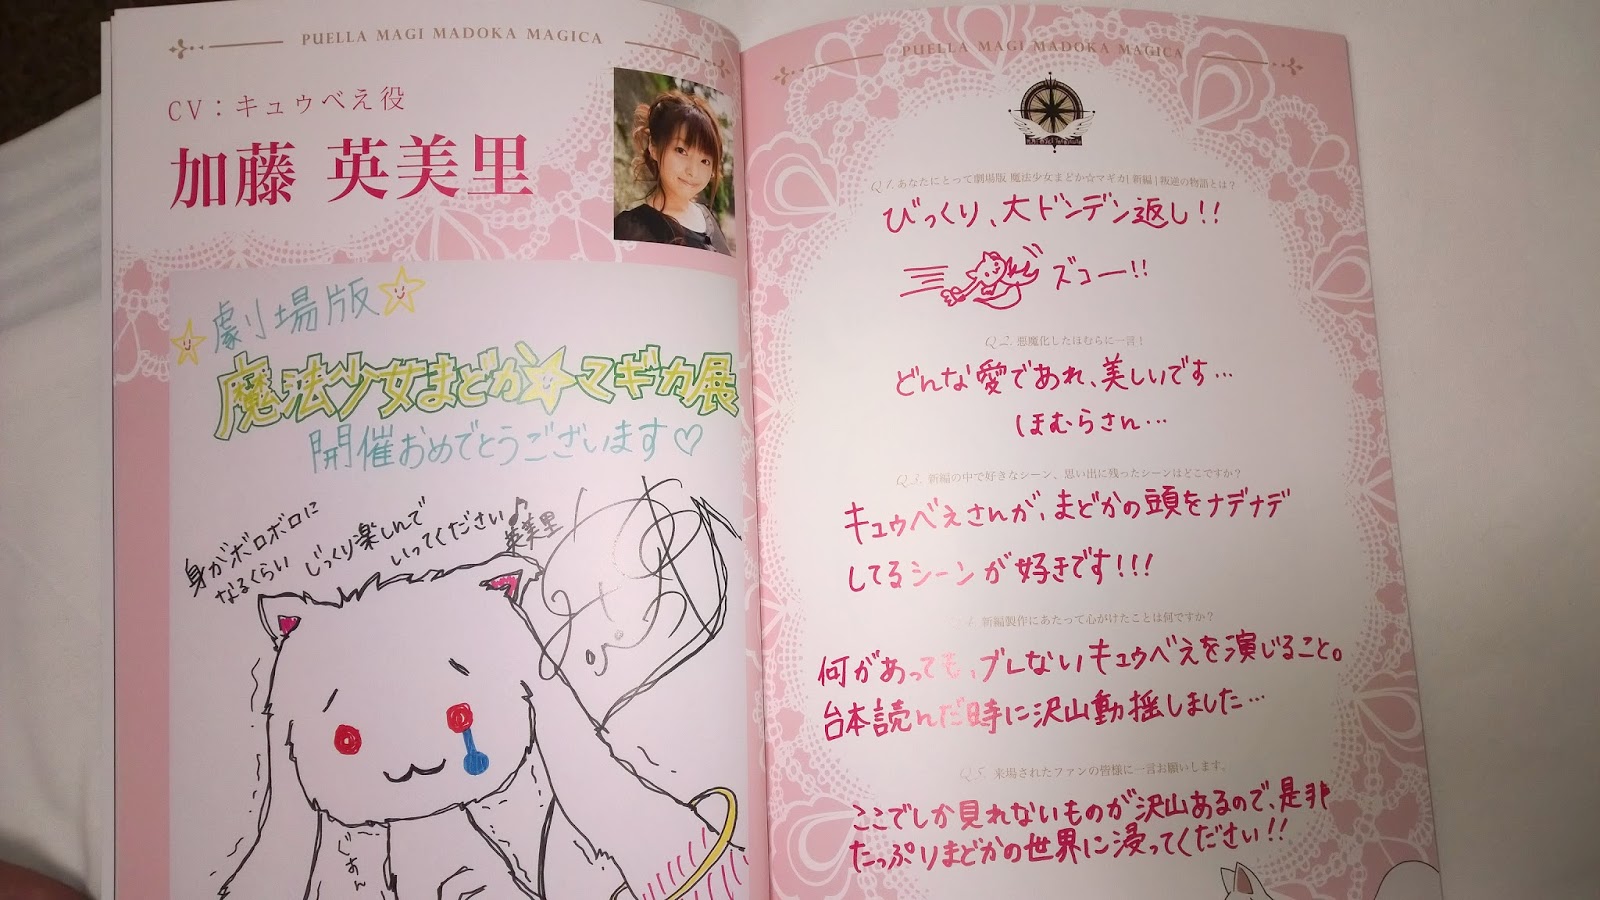 PUELLA MAGI MADOKA MAGICA
CV：キュゥべえ役
加藤 英美里
劇場版
魔法少女まどか☆マギカ展
開催おめでとうございます♡
身がボロボロに
なるくらい じっくり楽しんで
いってください♪
英美里
ぐすん
PUELLA MAGI MADOKA MAGICA
Q1. あなたにとって劇場版 魔法少女まどか☆マギカ[新編]叛逆の物語とは？
びっくり、大ドンデン返し!!
ズコー!!
Q2. 悪魔化したほむらに一言！
どんな愛であれ、美しいです…
ほむらさん…
Q3. 新編の中で好きなシーン、思い出に残ったシーンはどこですか？
キュゥべえさんが、まどかの頭をナデナデ
してるシーンが好きです!!!
4. 新編製作にあたって心がけたことは何ですか？
何があっても、ブレないキュゥべえを演じること。
台本読んだ時に沢山動揺しました…
Q5. 来場されたファンの皆様に一言お願いします。
ここでしか見れないものが沢山あるので、是非
たっぷりまどかの世界に浸ってください!!